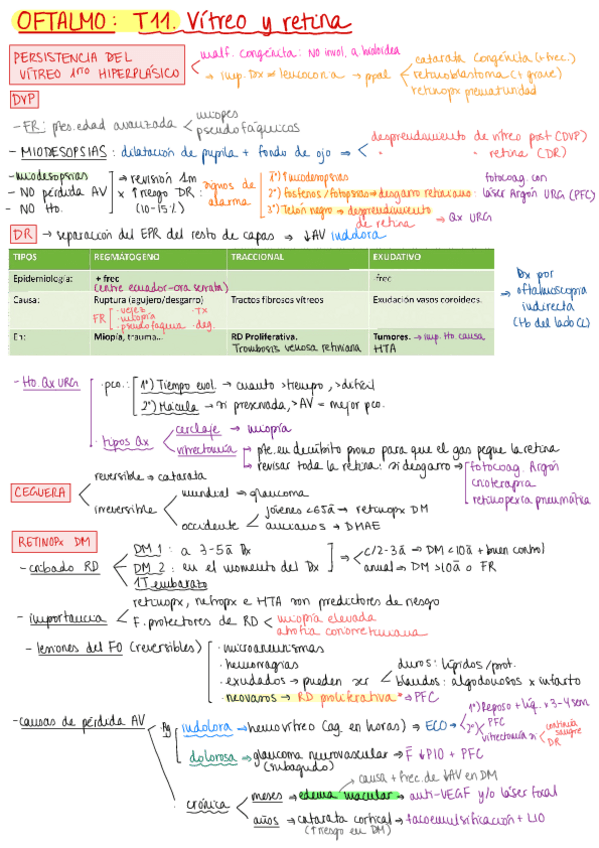 OFTALMO: T11. Vítreo y retina
PERSISTENCIA DEL VÍTREO 1ario HIPERPLÁSICO
malf. congénita: NO invol. a. hialoidea
→ imp. Dx ≠ leucocoria → ppal
catarata congénita (+ frec.)
retinoblastoma (+ grave)
retinopx prematuridad
DVP
- FR: ptes. edad avanzada
miopes
pseudofáquicos
- MIODESOPSIAS: dilatación de pupila + fondo de ojo ⇒
desprendimiento de vítreo post (DVP)
" " retina (DR)
- miodesopsias
- NO pérdida AV
- NO tto.
⇒ revisión 1m
x ↑ riesgo DR
(10-15%)
signos de alarma
1º) ↑ miodesopsias
2º) fosfenos/fotopsias ⇒ desgarro retiniano:
fotocoag. con láser Argón URG (PFC)
3º) Telón negro → desprendimiento de retina → Qx URG
DR → separación del EPR del resto de capas → ↓AV indolora
TIPOS REGMATOGENO TRACCIONAL EXUDATIVO
Epidemiología: + frec -frec
(entre ecuador-ora serrata)
Causa: Ruptura (agujero/desgarro) Tractos fibrosos vítreos Exudación vasos coroideos.
FR · vejez · TX
· miopía
· pseudofaquia · deg.
En: Miopía, trauma... RD Proliferativa. Tumores. → imp. tto. causa
Trombosis venosa retiniana HTA
→ Dx por oftalmoscopia indirecta
(tto del lado CL)
- tto. Qx URG
· pco.:
1º) Tiempo evol. → cuanto > tiempo, > difícil
2º) Mácula → si preservada, > AV = mejor pco.
· tipos Qx
cerclaje → miopía
vitrectomía
pte. en decúbito prono para que el gas pegue la retina
revisar toda la retina: si desgarro →
fotocoag. Argón
crioterapia
retinopexia pneumática
CEGUERA
reversible → catarata
irreversible
mundial → glaucoma
occidente
jóvenes <65ā → retinopx DM
ancianos → DMAE
RETINOPx DM
- cribado RD
DM 1: a 3-5ā Dx
DM 2: en el momento del Dx
1T embarazo
c/2-3ā → DM <10ā + buen control
anual → DM >10ā o FR
- importancia
retinopx, nefropx e HTA son predictores de riesgo
F. protectores de RD
miopía elevada
atrofia coriorretiniana
- lesiones del FO (reversibles)
· microaneurismas
· hemorragias
· exudados → pueden ser
duros: lípidos/prot.
blandos: algodonosos x infarto
· neovasos → RD proliferativa* → PFC
- causas de pérdida AV
Ag
indolora → hemovítreo (ag. en horas) ⇒ ECO →
1º) Reposo + líq. x 3-4 sem
2º) PFC
vitrectomía si
continúa sangre
DR
dolorosa → glaucoma neurovascular → F̄ ↓PIO + PFC
(subagudo)
crónica
causa + frec. de ↓AV en DM
meses → edema macular → anti-VEGF y/o láser focal
años → catarata cortical → facoemulsificación + LIO
(↑ riesgo en DM)